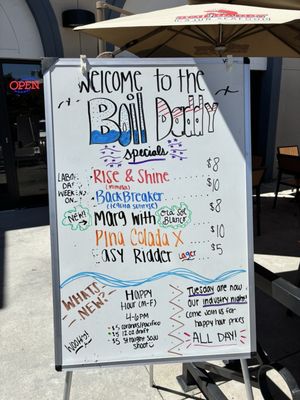 OPEN
Welcome to the
Boil Daddy
specials
LABOR
DAY
WEEKEND
ONLY
Rise & Shine $8
(mimosa)
BackBreaker $10
(tequila sunrise)
New!
Marg with $8
Pina Colada X $10
Easy Ridder Lager $5
WHAT'S
NEW?
Happy
Hour (M-F)
4-6pm
$5 coronas/pacifico
$5 12oz draft
Tuesday are now
our industry night!
Come join us for
happy hour prices
ALL DAY!